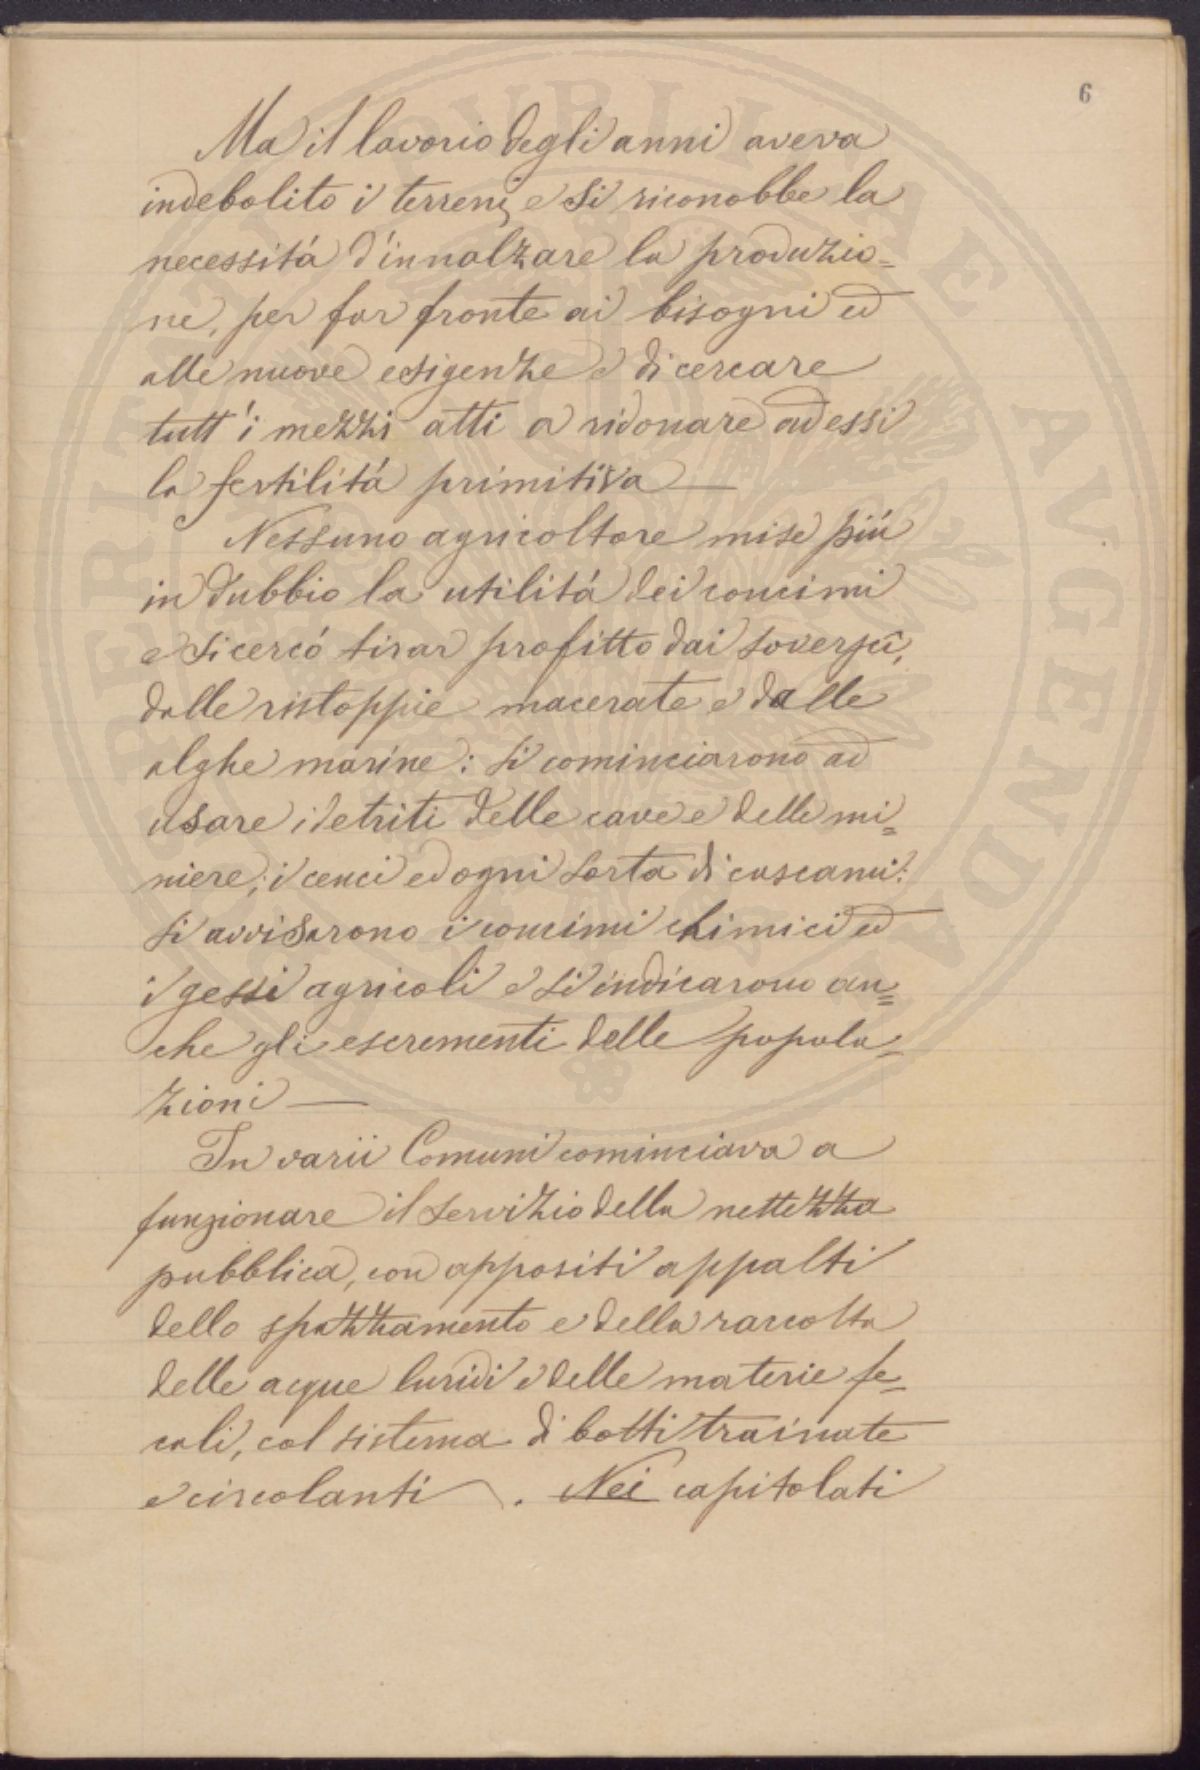 6
Ma il lavorio degli anni aveva
indebolito i terreni, e si riconobbe la
necessitá d'innalzare la produzio=
ne, per far fronte ai bisogni ed
alle nuove esigenze e di cercare
tutt'i mezzi atti a ridonare ad essi
la fertilitá primitiva —
Nessuno agricoltore mise piú
in dubbio la utilitá dei concimi
e si cercó tirar profitto dai soversci,
dalle ristoppie macerate e dalle
alghe marine: si cominciarono ad
usare i detriti delle cave e delle mi=
niere; i cenci ed ogni sorta di cascami:
si avvisarono i concimi chimici ed
i gessi agricoli e si indicarono an=
che gli escrementi delle popola=
zioni —
In varii Comuni cominciava a
funzionare il servizio della nettezza
pubblica, con appositi appalti
dello spazzamento e della raccolta
delle acque luridi e delle materie fe=
cali, col sistema di botti trainate
e circolanti . Nei capitolati